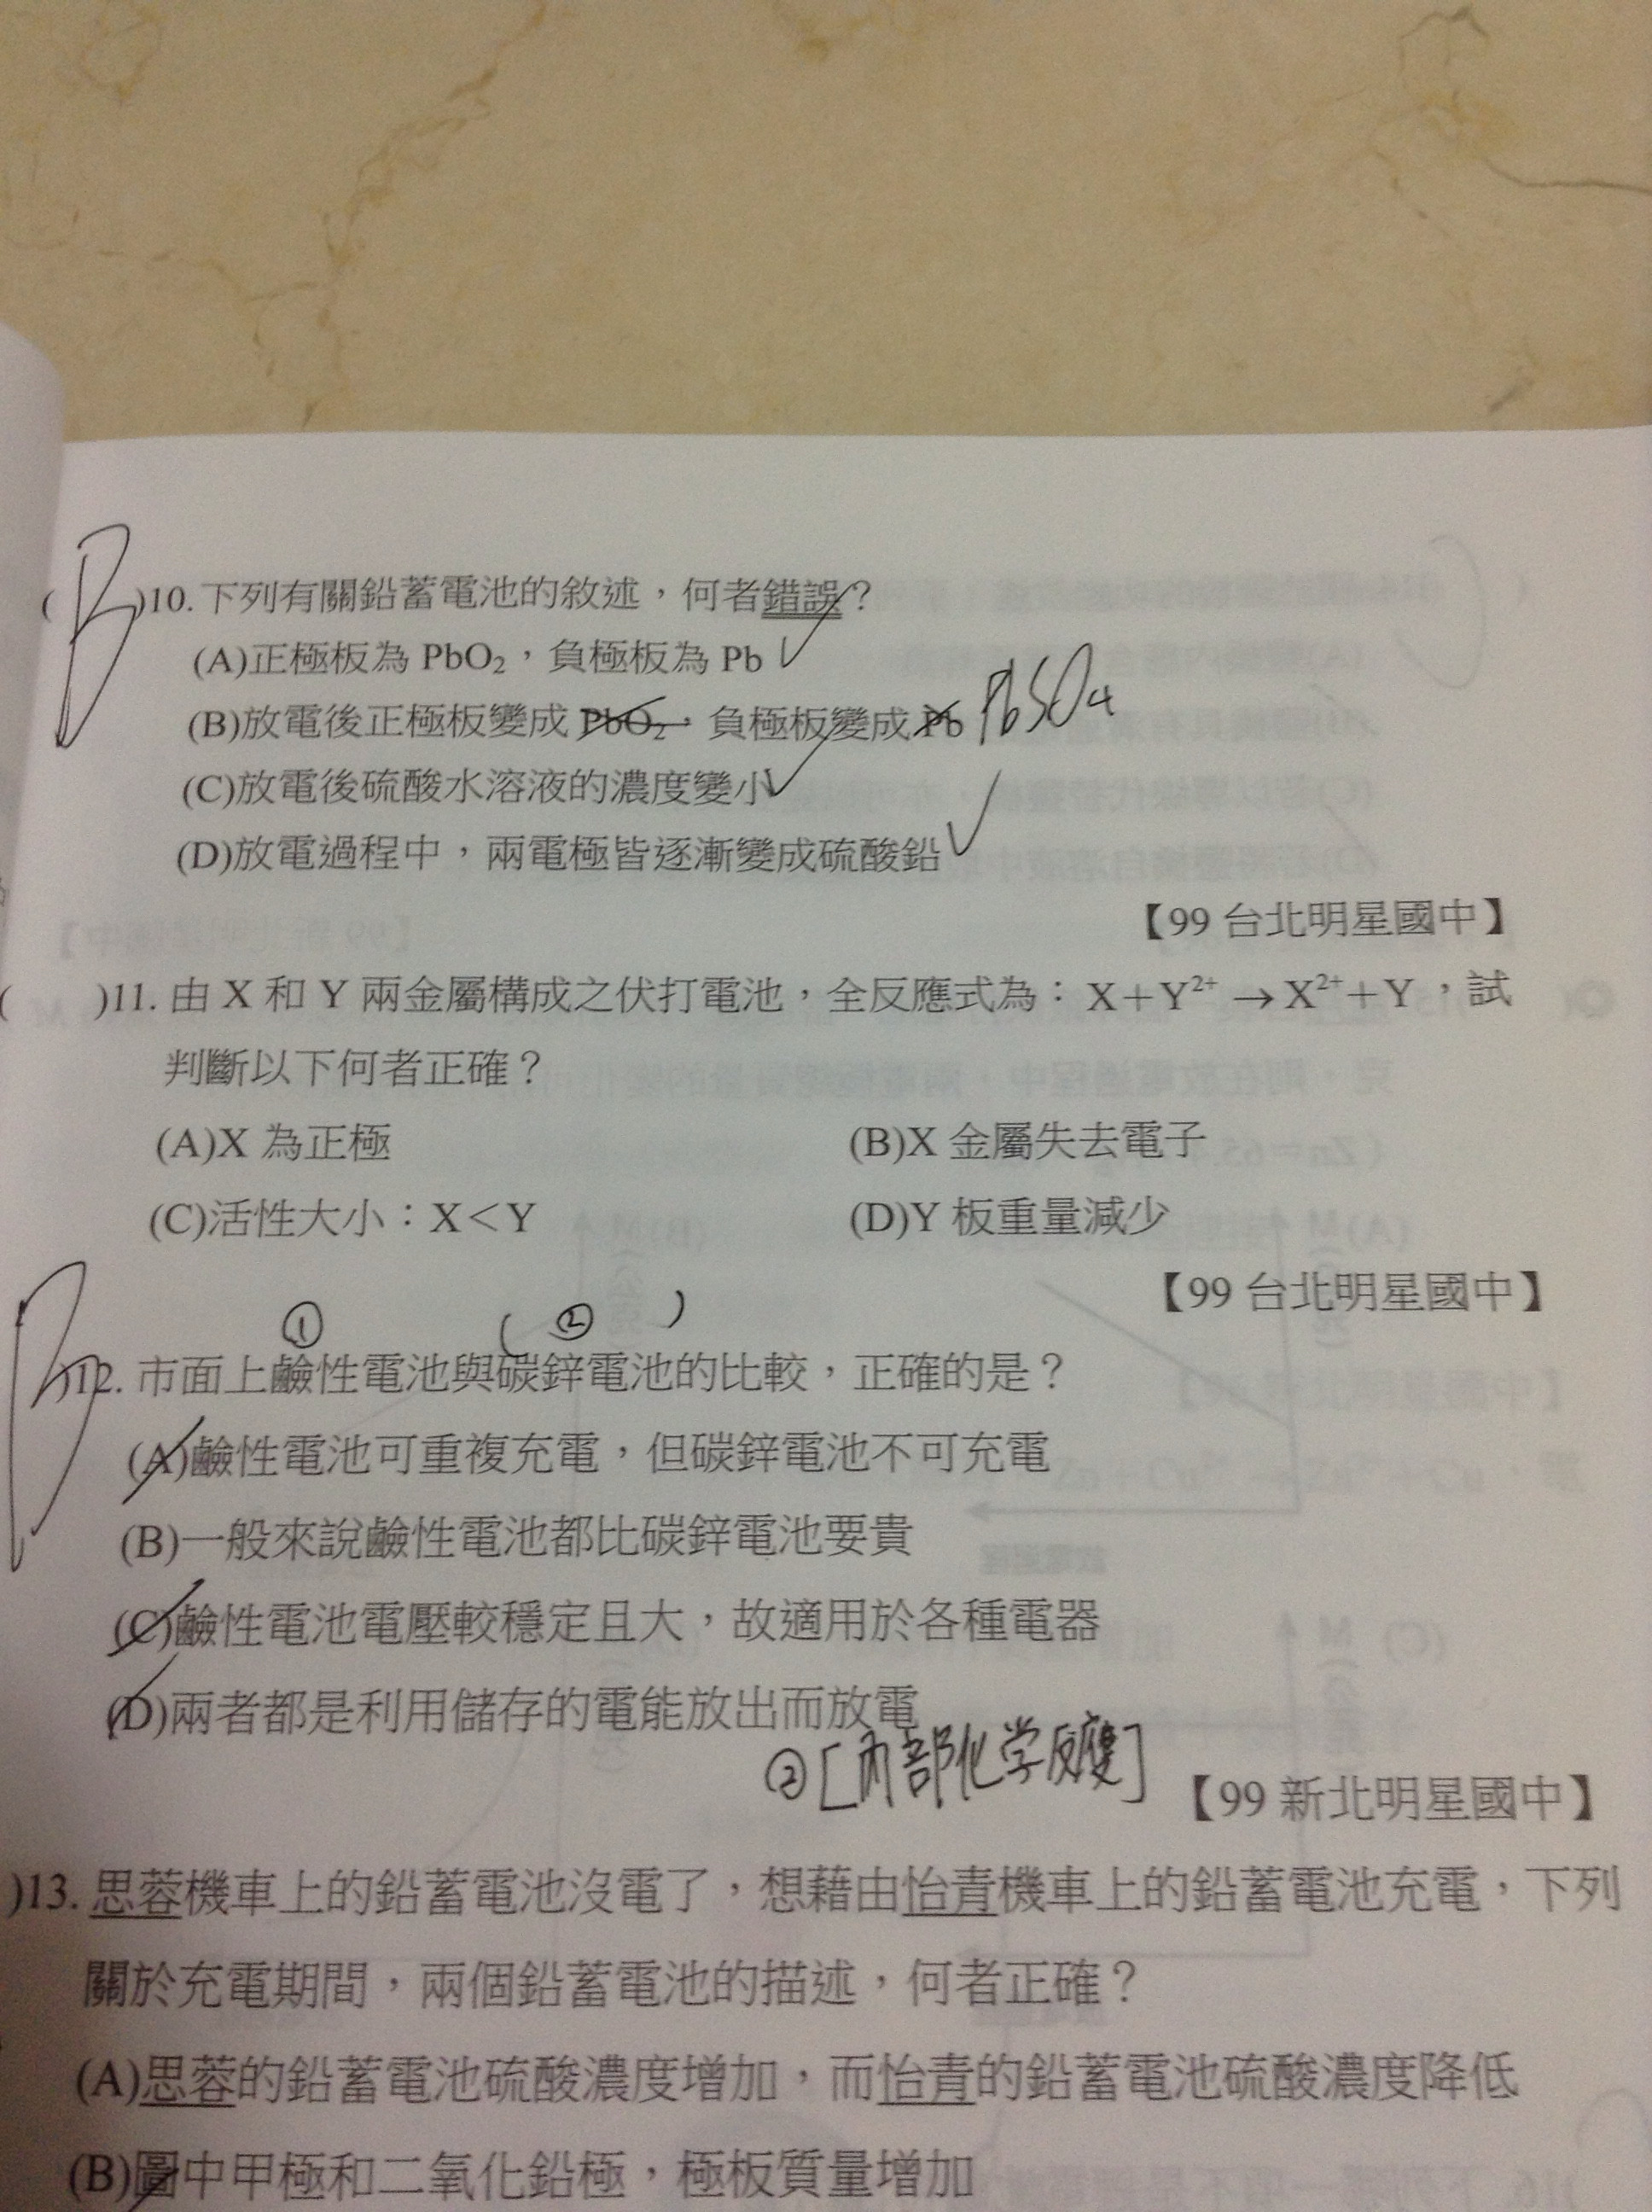 (B)10.下列有關鉛蓄電池的敘述，何者錯誤？
(A)正極板為 PbO₂，負極板為 Pb ✓
(B)放電後正極板變成 PbO₂，負極板變成 Pb PbSO₄
(C)放電後硫酸水溶液的濃度變小 ✓
(D)放電過程中，兩電極皆逐漸變成硫酸鉛 ✓
【99 台北明星國中】
( )11. 由 X 和 Y 兩金屬構成之伏打電池，全反應式為：X＋Y²⁺ → X²⁺＋Y，試
判斷以下何者正確？
(A)X 為正極 (B)X 金屬失去電子
(C)活性大小：X＜Y (D)Y 板重量減少
【99 台北明星國中】
① ( ② )
B )12. 市面上鹼性電池與碳鋅電池的比較，正確的是？
(A)鹼性電池可重複充電，但碳鋅電池不可充電
(B)一般來說鹼性電池都比碳鋅電池要貴
(C)鹼性電池電壓較穩定且大，故適用於各種電器
(D)兩者都是利用儲存的電能放出而放電
②[內部化学反應]
【99 新北明星國中】
)13. 思蓉機車上的鉛蓄電池沒電了，想藉由怡青機車上的鉛蓄電池充電，下列
關於充電期間，兩個鉛蓄電池的描述，何者正確？
(A)思蓉的鉛蓄電池硫酸濃度增加，而怡青的鉛蓄電池硫酸濃度降低
(B)圖中甲極和二氧化鉛極，極板質量增加